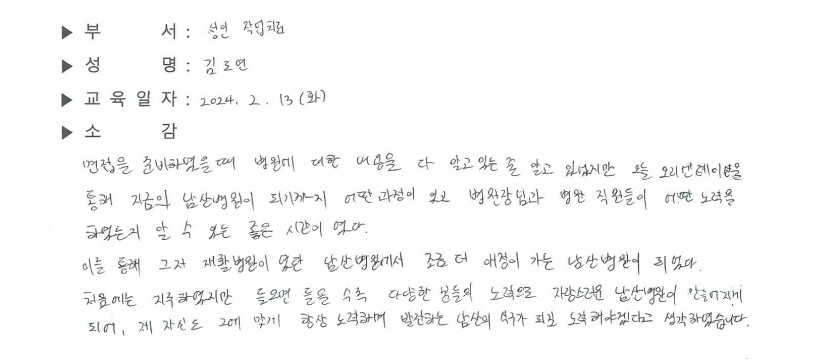 ▶ 부 서 : 성인 작업치료
▶ 성 명 : 김도연
▶ 교육일자 : 2024. 2. 13 (화)
▶ 소 감
면접을 준비하였을때 병원에 대한 내용을 다 알고있는 줄 알고 있었지만 오늘 오리엔테이션을
통해 지금의 남산병원이 되기까지 어떤 과정이 있고 병원장님과 병원 직원들이 어떤 노력을
하였는지 알 수 있는 좋은 시간이 였다.
이를 통해 그저 재활병원이 였던 남산병원에서 조금 더 애정이 가는 남산병원이 되었다.
처음에는 지루하였지만 들으면 들을 수록 다양한 분들의 노력으로 자랑스러운 남산병원이 만들어지게
되어, 제 자신도 그에 맞게 항상 노력하며 발전하는 남산의 식구가 되길 노력해야겠다고 생각하였습니다.